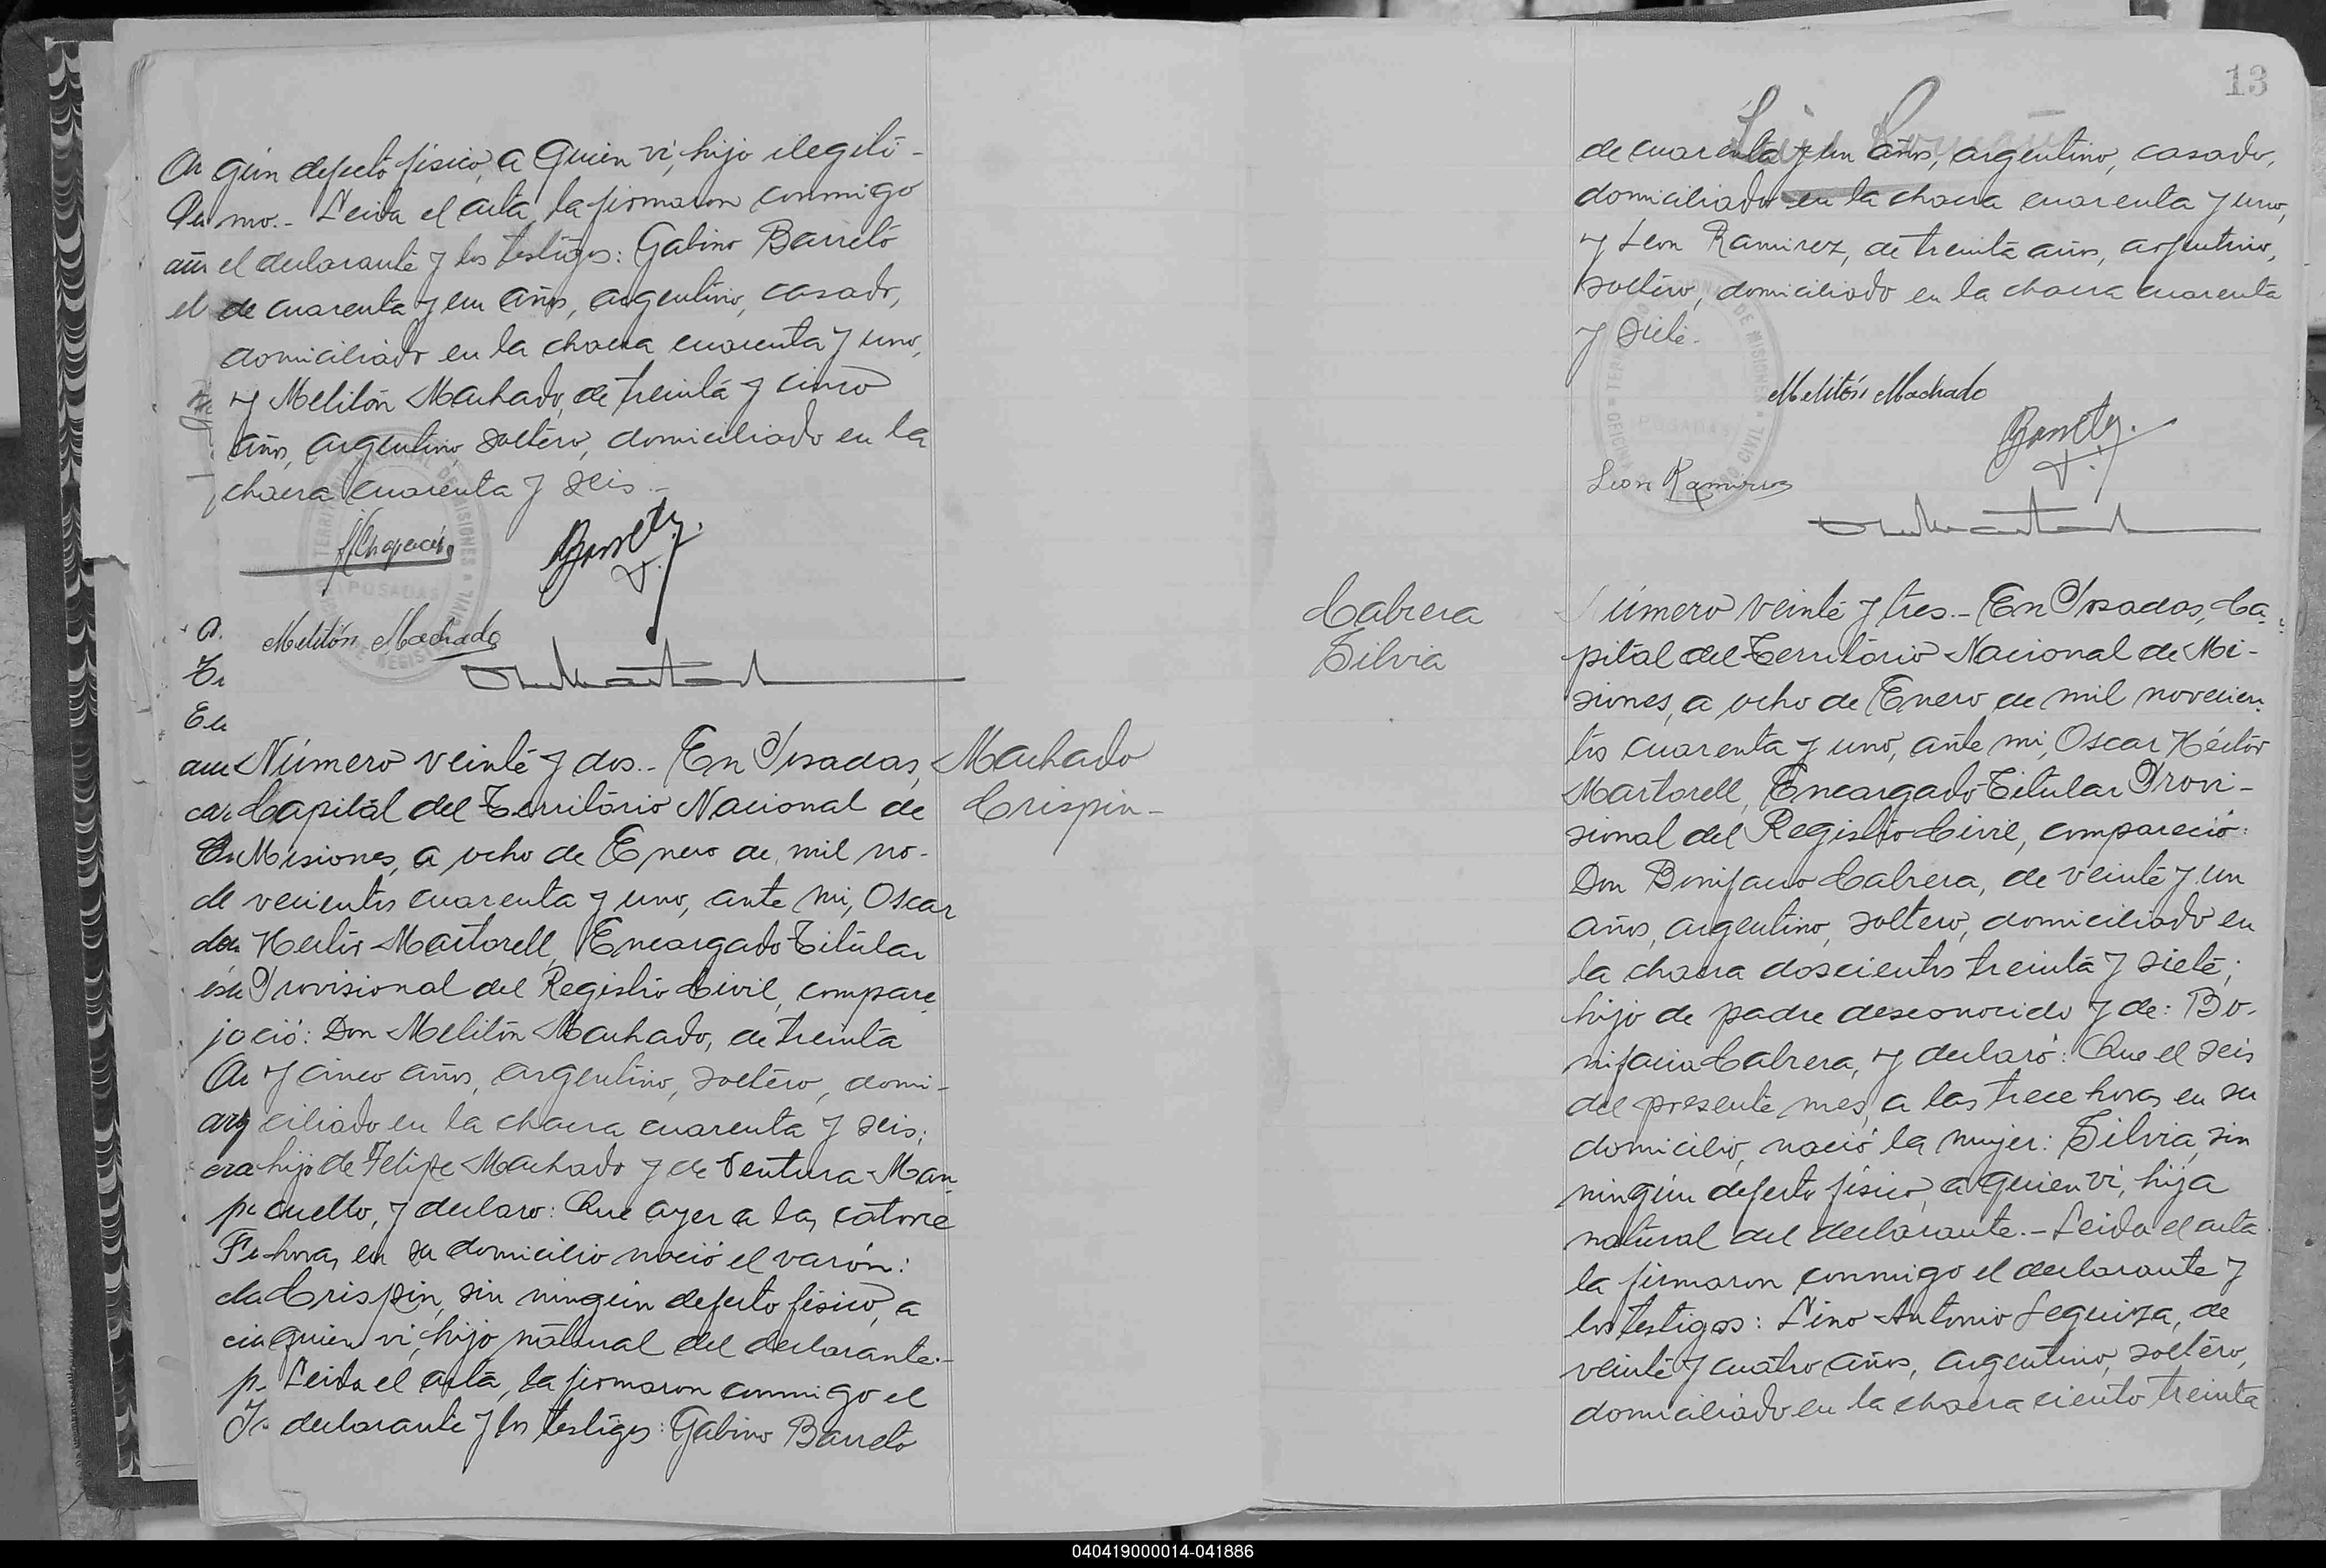 gún defecto físico, a quien vi, hijo ilegíti-
mo.- Leída el acta, la firmaron conmigo
el declarante y los testigos: Gabino Barreto
de cuarenta y un años, argentino, casado,
domiciliado en la chacra cuarenta y uno,
y Melitón Machado, de treinta y cinco
años, argentino, soltero, domiciliado en la
chacra cuarenta y seis.-
Melitón Machado
Machado
Crispin-
Número veinte y dos.- En Posadas,
Capital del Territorio Nacional de
Misiones, a ocho de Enero de mil no-
vecientos cuarenta y uno, ante mi, Oscar
Hector Martorell, Encargado Titular
Provisional del Registro Civil, compare-
ció: Don Melitón Machado, de treinta
y cinco años, argentino, soltero, domi-
ciliado en la chacra cuarenta y seis;
hijo de Felipe Machado y de Ventura Man-
cuello, y declaro: Que ayer a las catorce
horas, en su domicilio nació el varón:
Crispin, sin ningún defecto físico, a
quien vi, hijo natural del declarante.-
Leida el acta, la firmaron conmigo el
declarante y los testigos: Gabino Barreto
13
de cuarenta y un años, argentino, casado,
domiciliado en la chacra cuarenta y uno,
y Leon Ramirez, de treinta años, argentino,
soltero, domiciliado en la chacra cuarenta
y siete.
Melitón Machado
Leon Ramirez
Cabrera
Silvia
Número veinte y tres.- En Posadas, Ca-
pital del Territorio Nacional de Mi-
siones, a ocho de Enero de mil novecien-
tos cuarenta y uno, ante mi, Oscar Héctor
Martorell, Encargado Titular Provi-
sional del Registro Civil, compareció:
Don Bonifacio Cabrera, de veinte y un
años, argentino, soltero, domiciliado en
la chacra doscientos treinta y siete;
hijo de padre desconocido y de: Bo-
nifacia Cabrera, y declaró: Que el seis
del presente mes, a las trece horas, en su
domicilio, nació la mujer: Silvia, sin
ningún defecto físico, a quien vi, hija
natural del declarante.- Leida el acta
la firmaron conmigo el declarante y
los testigos: Lino Antonio Leguiza, de
veinte y cuatro años, argentino, soltero,
domiciliado en la chacra ciento treinta
040419000014-041886